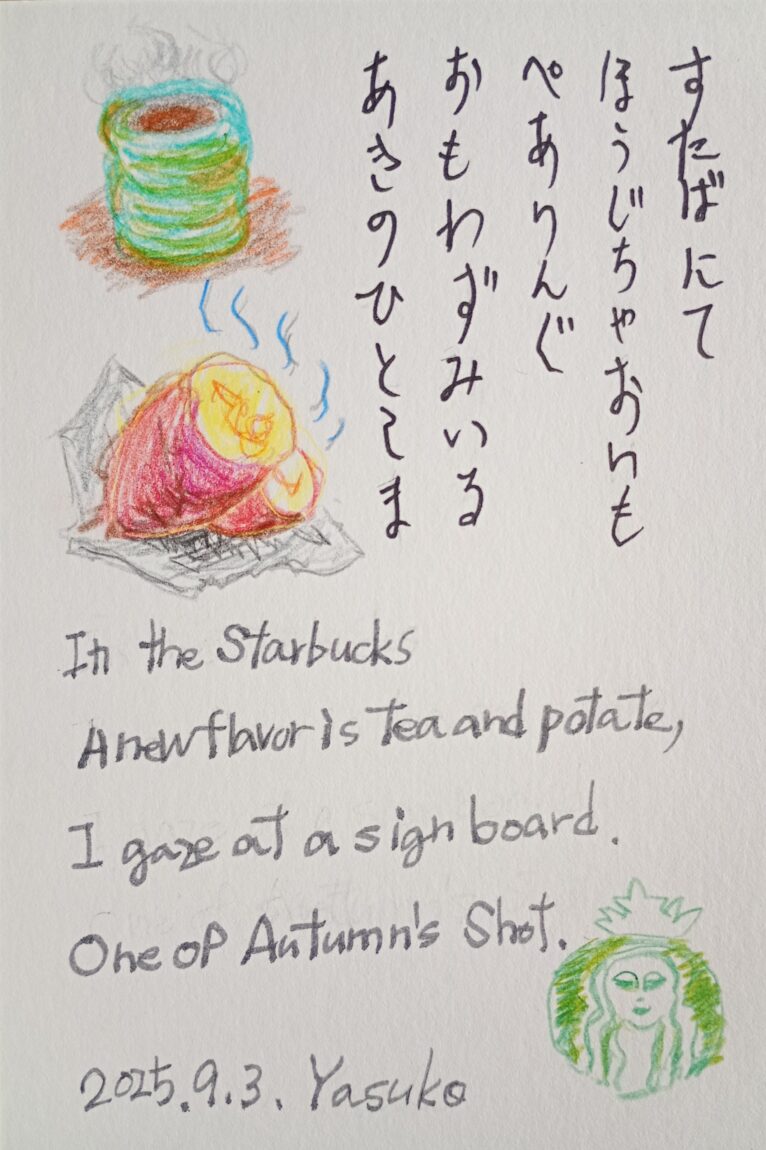 すたばにて
ほうじちゃおいも
ぺありんぐ
おもわずみいる
あきのひとこま
In the Starbucks
A new flavor is tea and potate,
I gaze at a sign board.
One of Autumn's Shot.
2025.9.3. Yasuko